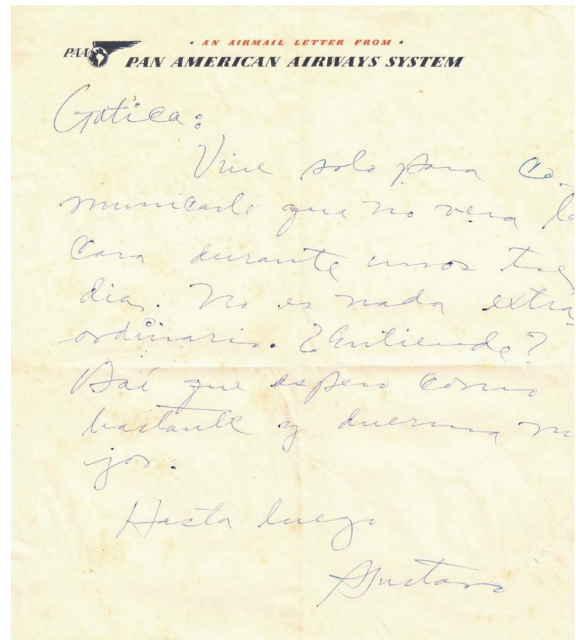 • AN AIRMAIL LETTER FROM •
PAA
PAN AMERICAN AIRWAYS SYSTEM
Gatica:
Vine solo para co-
municarle que no vera la
cara durante unos tres
dias. No es nada extra-
ordinario. ¿Entiende?
que espero coma
bastante y duerma me
jor.
Hasta luego
Gustavo